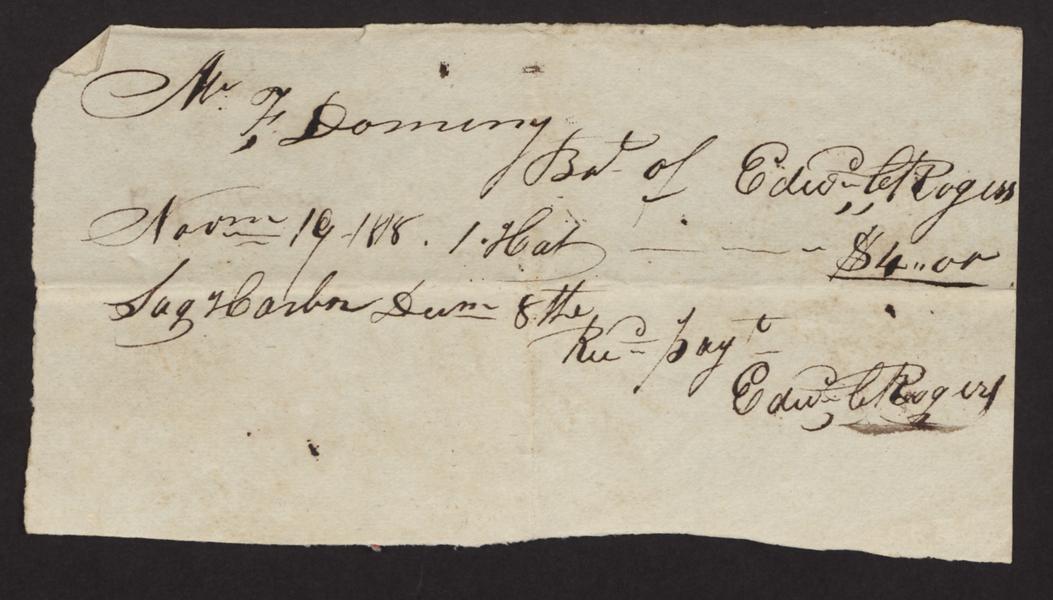 Mr F. Dominy
Bot of Edwd C Rogers
Novm 19 - 1818. 1. Hat — — — $4,,00
Sag Harbor Decm 8the
Recd payt
Edwd C Rogers